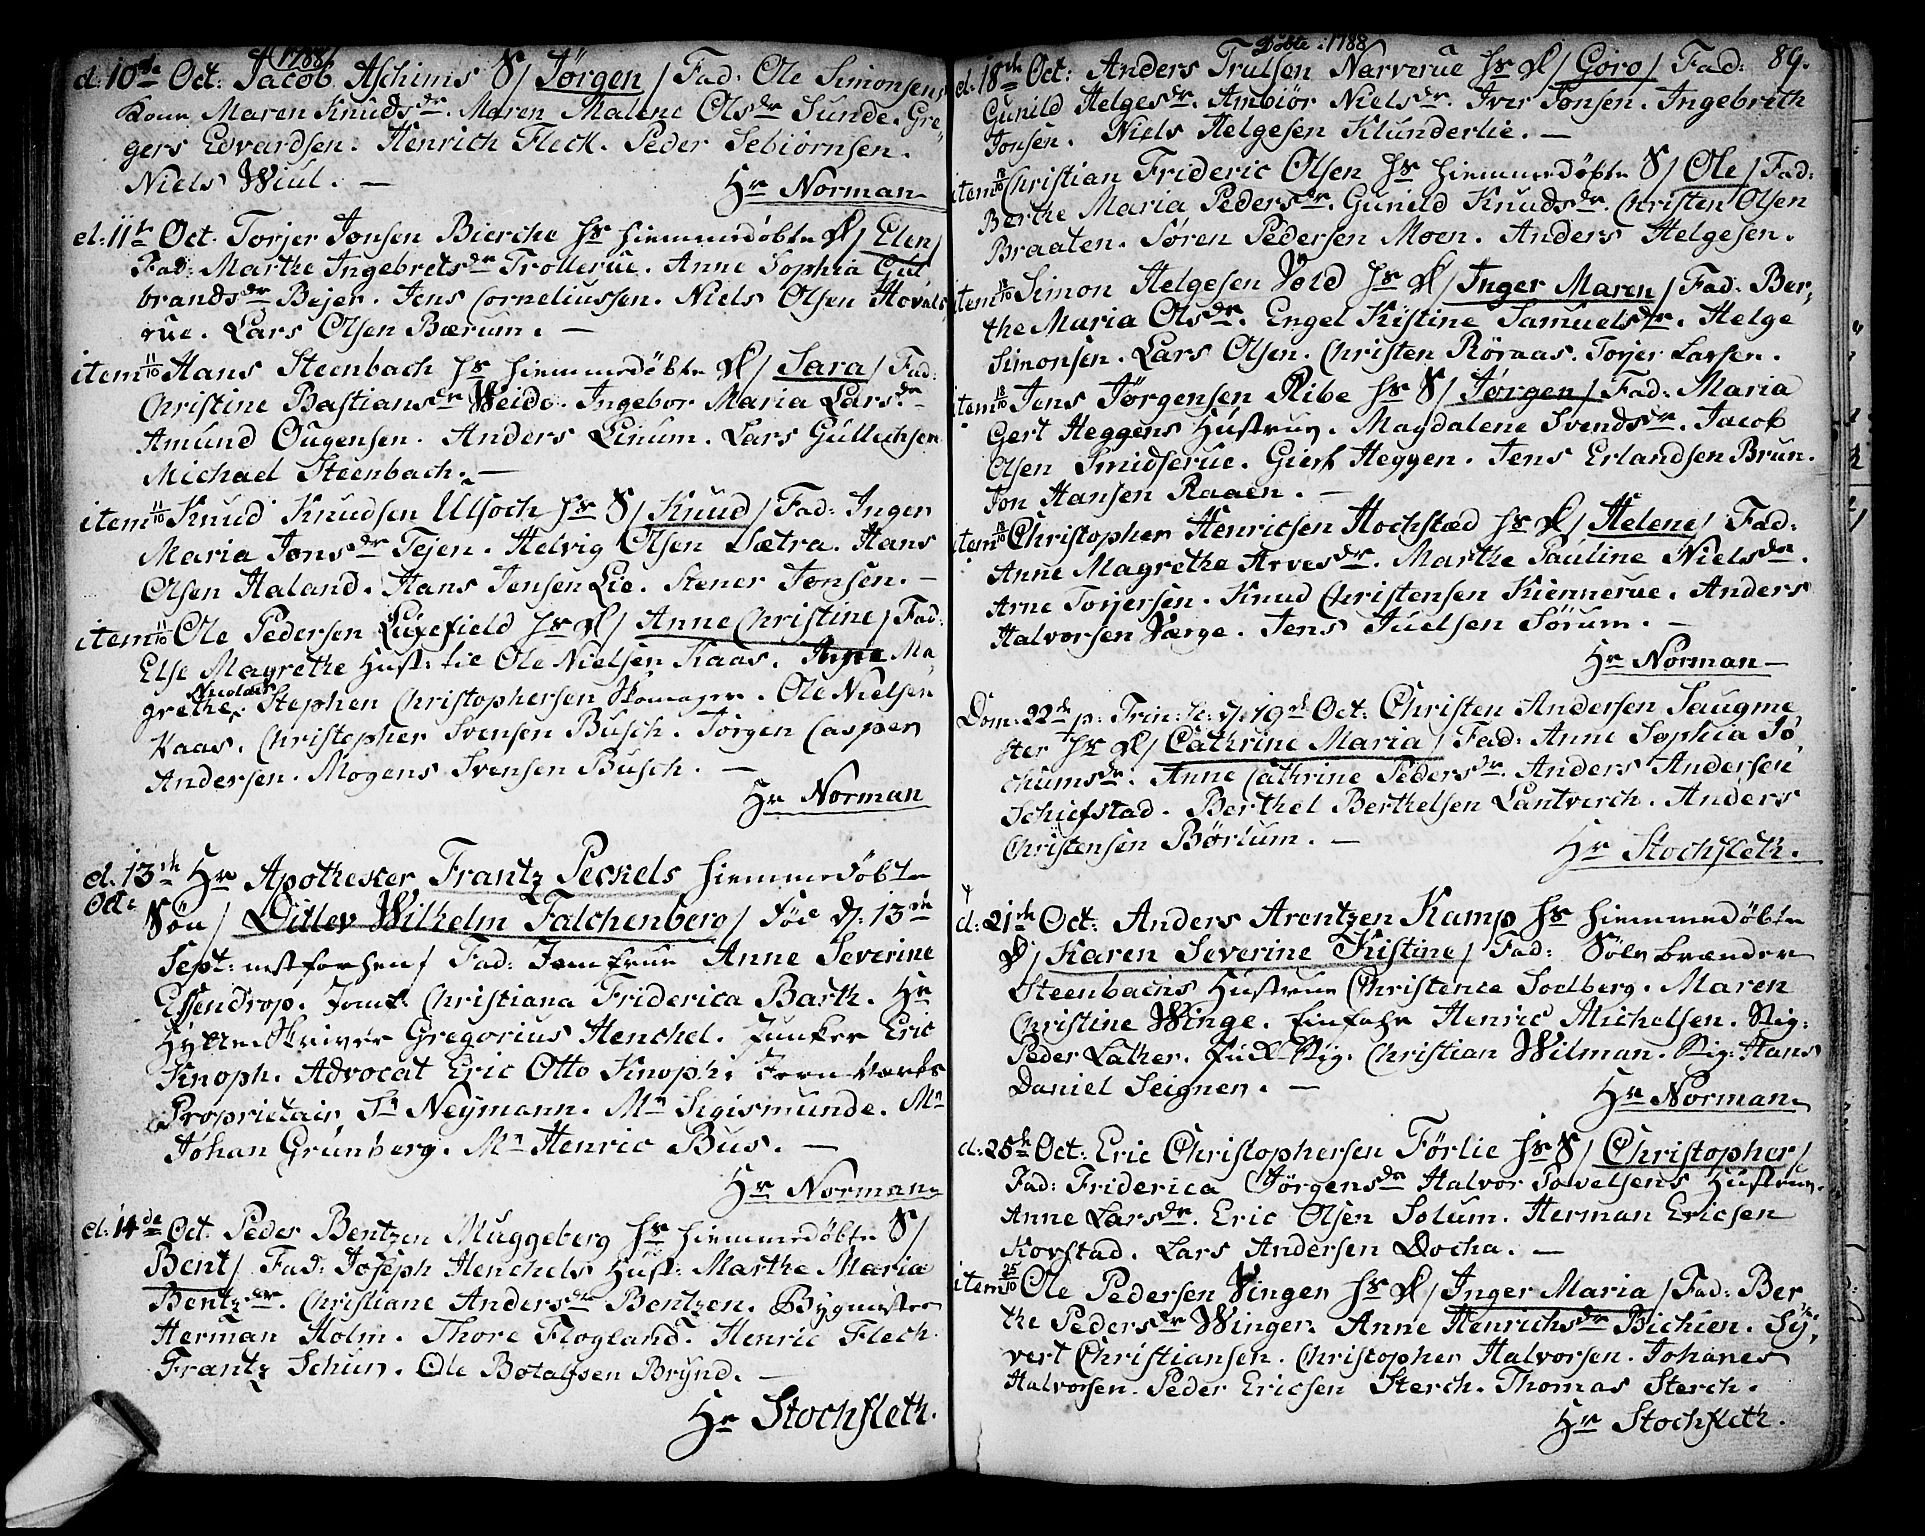 1788
d: 10de Oct: Jacob Aschims S/ Jørgen / Fad: Ole Simonsens
Kone Maren Knudsdr. Maren Malene Olsdr Sunde. Gre-
gers Edvardsen. Henrich Fleck. Peder Sebiørnsen.
Niels Wiul. —
Hr Norman
d: 11te Oct. Torjer Jonsen Bierche hs hiemmedøbte D/ Elen/
Fad: Marthe Ingebretsdr Trollerue. Anne Sophia Gul
brandsdr Bejer. Jens Corneliussen. Niels Olsen Hovals
rue. Lars Olsen Bærum. —
item 11/10 Hans Steenbach hs hiemmedøbte D/ Sara / Fad:
Christine Bastiansdr Weide. Ingebor Maria Larsdr
Amund Ougensen. Anders Linum. Lars Gullichsen
Michael Steenbach. —
item 11/10 Knud Knudsen Ulsoch hs S/ Knud / Fad: Inger
Maria Jonsdr Tejen. Helvig Olsen Sætra. Hans
Olsen Haland. Hans Jensen Lie. Stener Jonsen. —
item 11/10 Ole Pedersen Luxefield hs D/ Anne Christine / Fad:
Else Magrethe Hust: tie Ole Nielsen Kaas. Anne Ma-
grethe Stephen Christophersen Skomager. Ole Nielsen
Kaas. Christopher Svensen Busch. Jørgen Casper
Andersen. Mogens Svensen Busch. —
Hr Norman
d: 13de Hr Apotheker Frantz Peckels hiemmedøbte
Oct:
Søn / Ditlev Wilhelm Falchenberg / fød d: 13de
Sept: nestforhen / Fad: Jomfrue Anne Severine
Essendrop. Jomf: Christiana Friderica Barth. Hr
Hytteskriver Gregorius Henchel. Junker Eric
Knoph. Advocat Eric Otto Knoph. Jern Værks
Proprietair Sr Neymann. Mr Sigismunde. Mr
Johan Grünberg. Mr Henric Bus. —
Hr Norman
d: 14de Oct. Peder Bentzen Muggeberg hs hiemmedøbte S/
Bent / Fad: Joseph Henchels Hust: Marthe Maria
Bentzdr. Christiane Andersdr Bentzen. Bygmester
Herman Holm. Thore Flogland. Henric Flech.
Frantz Schun. Ole Botalfsen Brynd. —
Hr Stochfleth.
Døbte 1788
89.
d: 18de Oct: Anders Trulsen Narverue hs D/ Goro / Fad:
Gunild Helgesdr. Ambiør Nielsdr. Iver Jonsen. Ingebreth
Jonsen. Niels Helgesen Klunderlie. —
item 18/10 Christian Frideric Olsen hs hiemmedøbte S/ Ole / Fad:
Berthe Maria Pedersdr. Gunild Knudsdr. Christen Olsen
Braaten. Søren Pedersen Moen. Anders Helgesen.
item 18/10 Simon Helgesen Vold hs D/ Inger Maren / Fad: Ber-
the Maria Olsdr. Engel Kistine Samuelsdr. Helge
Simonsen. Lars Olsen. Christen Røraas. Torjer Larsen.
item 18/10 Jens Jørgensen Ribe hs S/ Jørgen / Fad: Maria
Gert Heggens Hustrue. Magdalene Svendsdr. Jacob
Olsen Smidserue. Giert Heggen. Jens Erlandsen Brun.
Jon Hansen Raaen. —
item 18/10 Christopher Henricsen Hochstæd hs D/ Helene / Fad:
Anne Magrethe Arvesdr. Marthe Pauline Nielsdr.
Arne Torjersen. Knud Christensen Kiennerue. Anders
Halvorsen Værge. Jens Juelsen Sørum. —
Hr Norman
Dom: 22de p: Trin: h: d: 19de Oct: Christen Andersen Saugme
ster hs D/ Cathrine Maria / Fad: Anne Sophia Jo
chumsdr. Anne Cathrine Pedersdr. Anders Andersen
Schiefstad. Berthel Berthelsen Lantverch. Anders
Christensen Børlum. —
Hr Stochfleth.
d: 21de Oct: Anders Arentzen Kamp hs hiemmedøbte
D/ Karen Severine Kistine / Fad: Sølvbrænder
Steenbachs Hustrue Christence Sodberg. Maren
Christine Winge. Einfahr Henric Michelsen. Stig:
Peder Lather. Puck Stig. Christian Wilman. Stig: Hans
Daniel Seigner. —
Hr Norman
d: 25de Oct: Eric Christophersen Førlie hs S/ Christopher /
Fad: Friderica Jørgensdr Halvor Povelsens Hustrue.
Anne Larsdr. Eric Olsen Solum. Herman Ericsen
Kovstad. Lars Andersen Docka. —
item 25/10 Ole Pedersen Vinger hs D/ Inger Maria / Fad: Ber
the Pedersdr Winger. Anne Henrichsdr Bichien. Sy-
vert Christiansen. Christopher Halvorsen. Johanes
Halvorsen. Peder Ericsen Sterch. Thomas Sterch.
Hr Stochfleth.